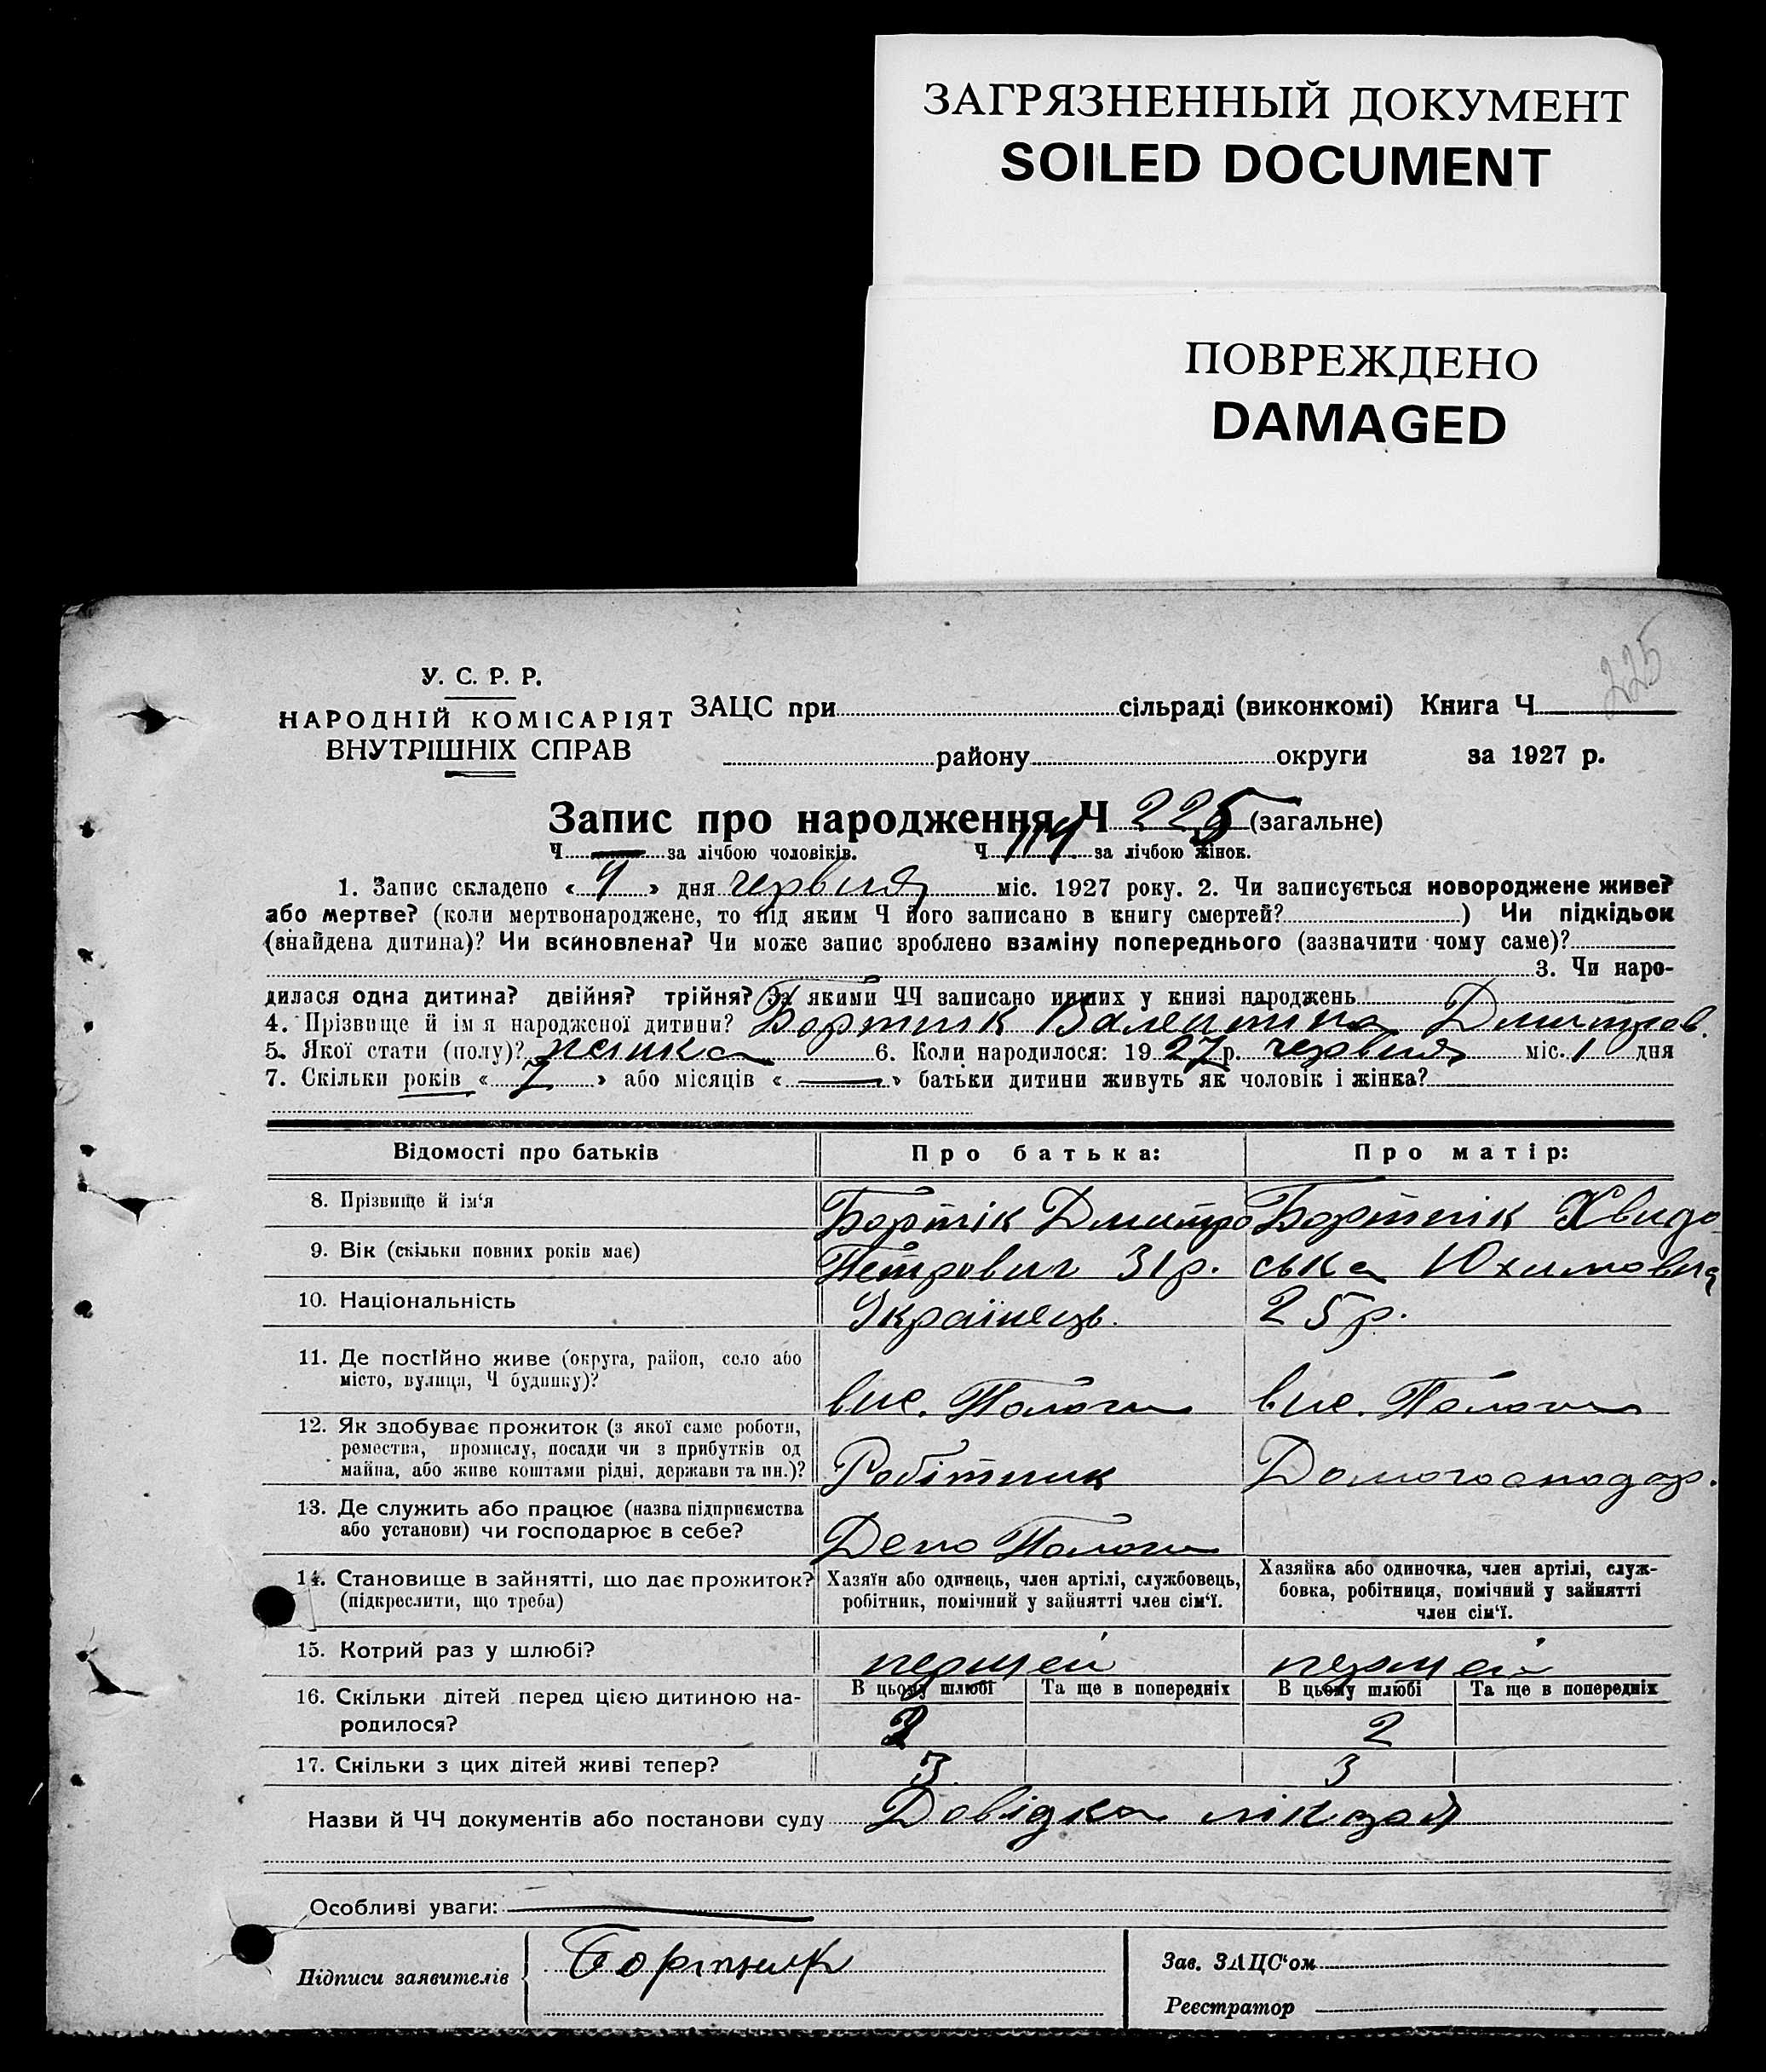 ЗАГРЯЗНЕННЫЙ ДОКУМЕНТ
SOILED DOCUMENT
ПОВРЕЖДЕНО
DAMAGED
225
У. С. Р. Р.
НАРОДНІЙ КОМІСАРІЯТ
ВНУТРІШНІХ СПРАВ
ЗАЦС при сільраді (виконкомі) Книга Ч
району округи за 1927 р.
Запис про народження Ч 225 (загальне)
Ч — за лічбою чоловіків. Ч 114 за лічбою жінок.
1. Запис складено « 4 » дня червня міс. 1927 року. 2. Чи записується новороджене живе?
або мертве? (коли мертвонароджене, то під яким Ч його записано в книгу смертей? ) Чи підкідьок
(знайдена дитина)? Чи всиновлена? Чи може запис зроблено взаміну попереднього (зазначити чому саме)?
3. Чи наро-
дилася одна дитина? двійня? трійня? За якими ЧЧ записано инших у книзі народжень
4. Прізвище й ім я народженої дитини? Бортнік Валентіна Дмитров.
5. Якої стати (полу)? жінка 6. Коли народилося: 1927 р. червня міс. 1 дня
7. Скільки років « 7 » або місяців « — » батьки дитини живуть як чоловік і жінка?
Відомості про батьків Про батька: Про матір:
8. Прізвище й ім'я Бортнік Дмитро Бортнік Хвидо
9. Вік (скільки повних років має) Петрович 31 р. ська Юхимовна
10. Національність Українець. 25 р.
11. Де постійно живе (округа, район, село або
місто, вулиця, Ч будинку)? вис. Пологи вис. Пологи
12. Як здобуває прожиток (з якої саме роботи,
ремества, промислу, посади чи з прибутків од
майна, або живе коштами рідні, держави та ин.)? Робітник Домогосподар.
13. Де служить або працює (назва підприємства
або установи) чи господарює в себе? Депо Пологи
14. Становище в зайнятті, що дає прожиток?
(підкреслити, що треба)
Хазяїн або одинець, член артілі, службовець,
робітник, помічний у зайнятті член сім'ї.
Хазяйка або одиночка, член артілі, служ-
бовка, робітниця, помічний у зайнятті
член сім'ї.
15. Котрий раз у шлюбі? першей першей
16. Скільки дітей перед цією дитиною на-
родилося?
В цьому шлюбі Та ще в попередніх В цьому шлюбі Та ще в попередніх
2 2
17. Скільки з цих дітей живі тепер? 3 3
Назви й ЧЧ документів або постанови суду Довідка
Особливі уваги: —
Підписи заявителів Бортник
Зав. ЗАЦС'ом
Реєстратор